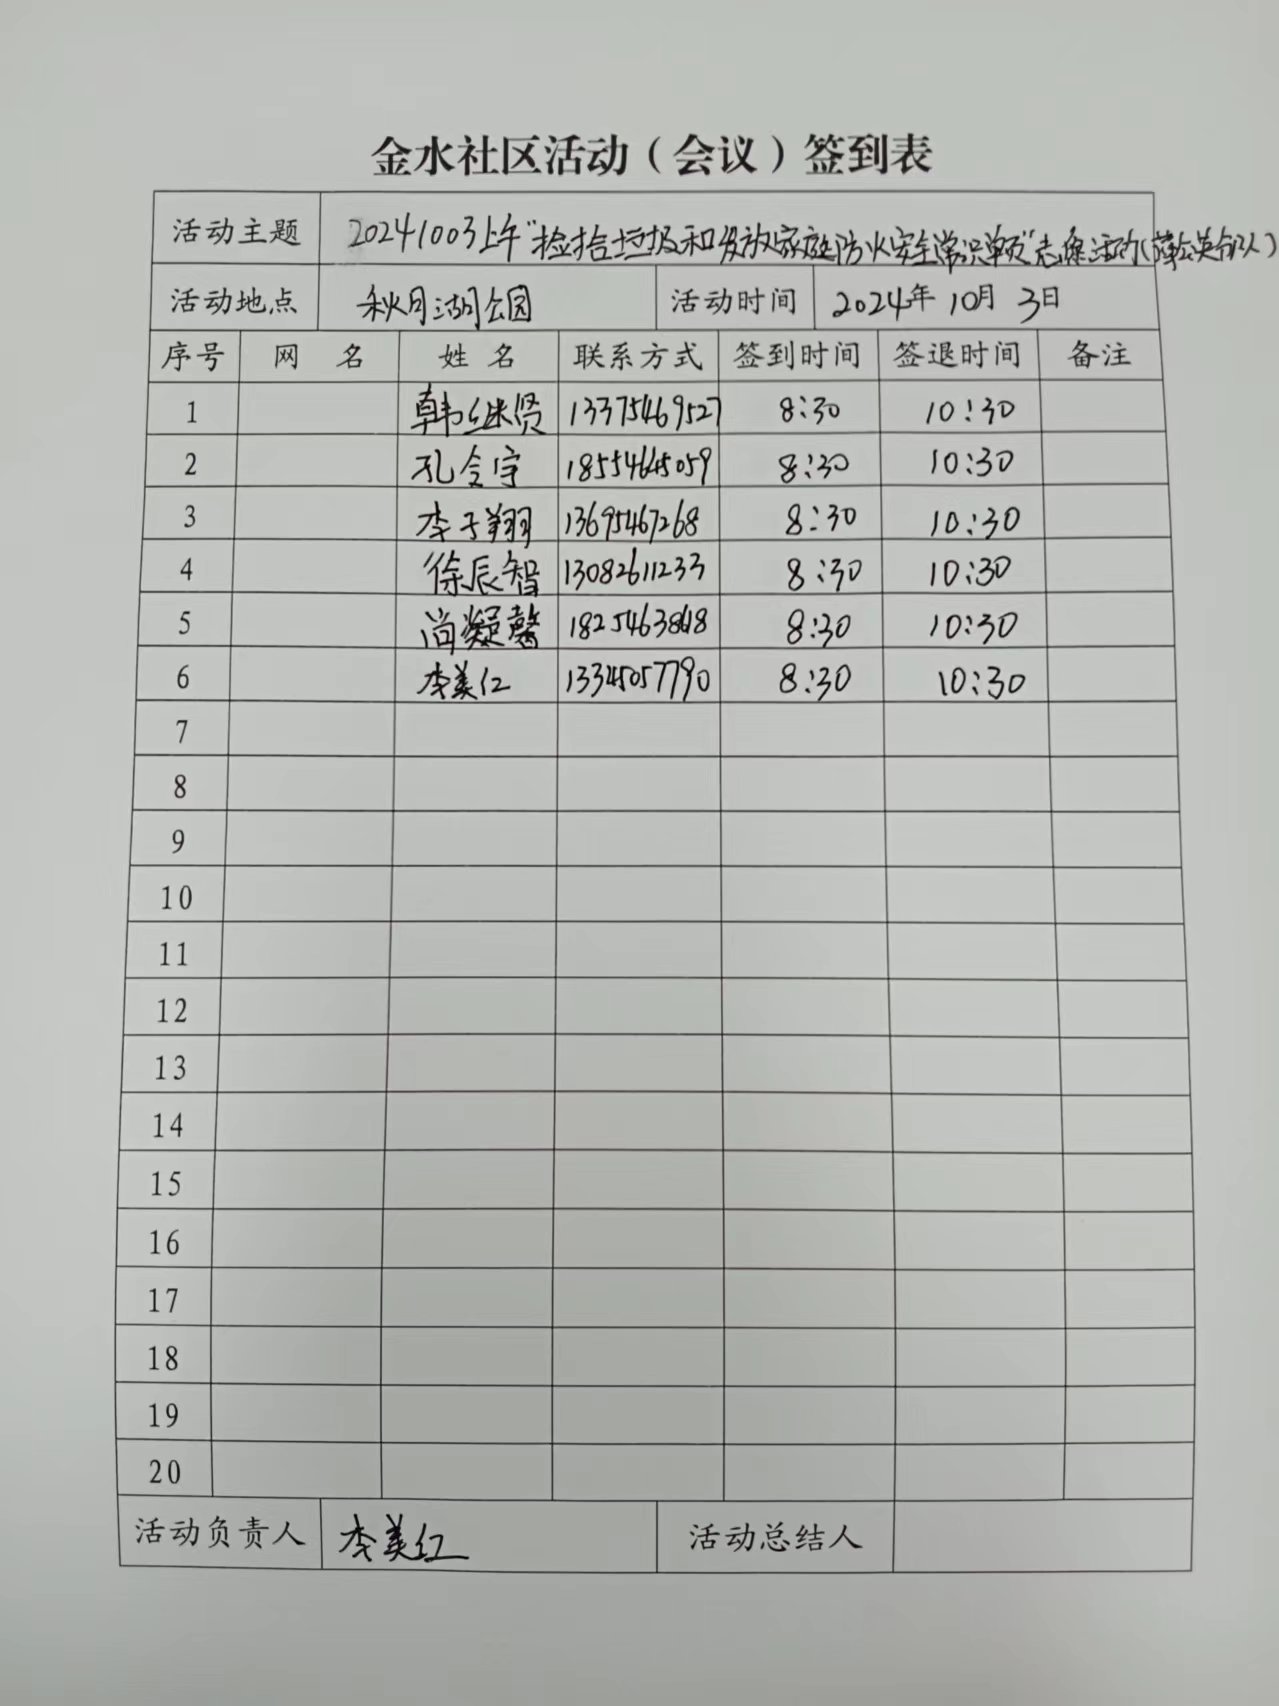 金水社区活动（会议）签到表
活动主题 20241003上午"捡拾垃圾和发放家庭防火安全常识单页"志愿活动(蒲公英分队)
活动地点 秋月湖公园 活动时间 2024年 10月 3日
序号 网 名 姓 名 联系方式 签到时间 签退时间 备注
1 韩继贤 13375469527 8:30 10:30
2 孔令宇 18554645059 8:30 10:30
3 李子翔 13695467268 8:30 10:30
4 徐辰智 13082611233 8:30 10:30
5 尚凝馨 8:30 10:30
6 李美红 13345057790 8:30 10:30
7
8
9
10
11
12
13
14
15
16
17
18
19
20
活动负责人 李美红 活动总结人